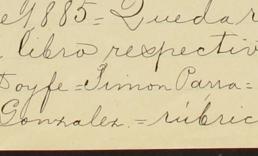 e 1885 = Queda r
libro respectiv
Doyfe = Simon Parra =
Gonzalez. = rúbric